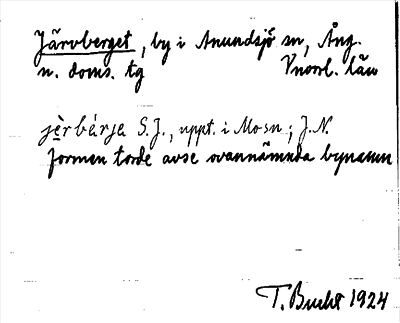 Järvberget, by i Anundsjö sn, Ång.
n. doms. tg Vnorrl. län
jèrbárje S.J., uppt. i Mosn; J.N.
formen torde avse ovannämnda bynamn
T. Bucht 1924